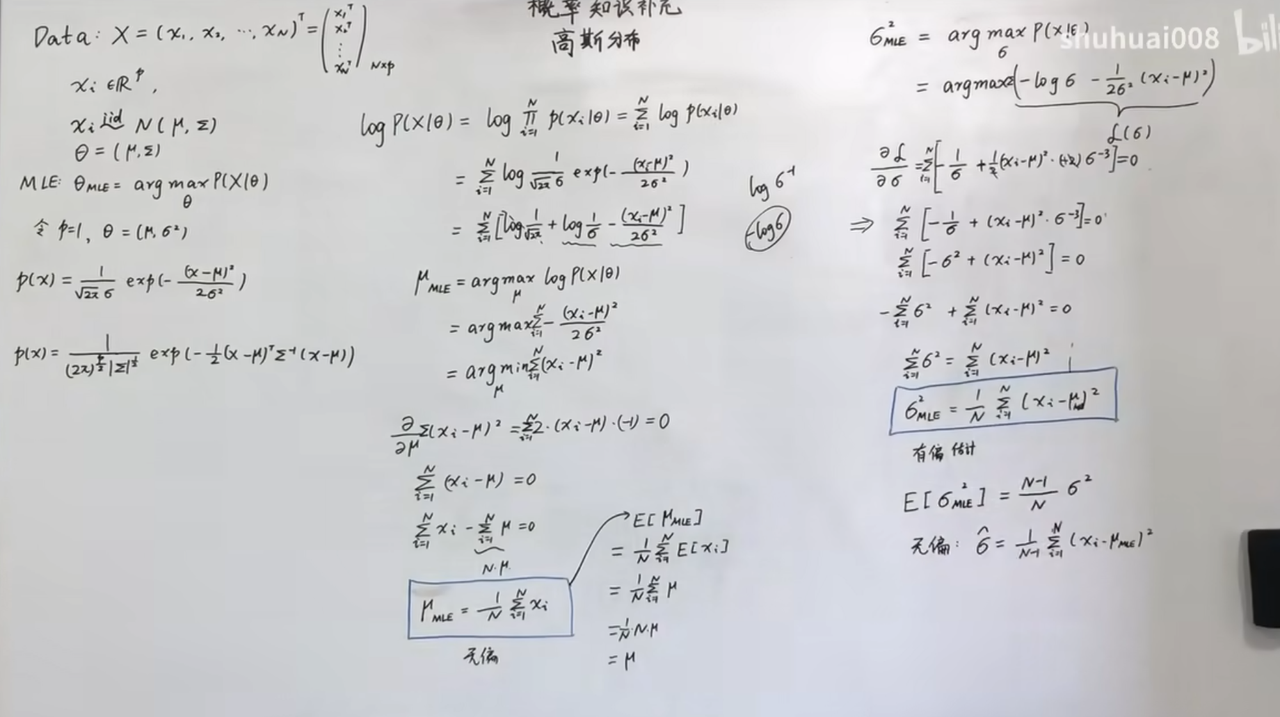 概率知识补充
高斯分布
shuhuai008 bili
Data: X = (x₁, x₂, ⋯, x_N)ᵀ = (x₁ᵀ x₂ᵀ ⋮ x_Nᵀ)_{N×p}
xᵢ ∈ ℝᵖ,
xᵢ iid~ N(μ, Σ)
θ = (μ, Σ)
MLE: θ_MLE = arg max_θ P(X|θ)
令 p=1, θ = (μ, σ²)
p(x) = 1/(√2π σ) exp(-(x-μ)²/2σ²)
p(x) = 1/((2π)^{p/2} |Σ|^{1/2}) exp(-½(x-μ)ᵀ Σ⁻¹ (x-μ))
log P(X|θ) = log ∏_{i=1}^N p(xᵢ|θ) = Σ_{i=1}^N log p(xᵢ|θ)
= Σ_{i=1}^N log 1/(√2π σ) exp(-(xᵢ-μ)²/2σ²)
= Σ_{i=1}^N [log 1/√2π + log 1/σ - (xᵢ-μ)²/2σ²]
log σ⁻¹
-log σ
μ_MLE = arg max_μ log P(X|θ)
= arg max Σ_{i=1}^N - (xᵢ-μ)²/2σ²
= arg min_μ Σ_{i=1}^N (xᵢ-μ)²
∂/∂μ Σ(xᵢ-μ)² = Σ_{i=1}^N 2·(xᵢ-μ)·(-1) = 0
Σ_{i=1}^N (xᵢ-μ) = 0
Σ_{i=1}^N xᵢ - Σ_{i=1}^N μ = 0
N·μ
μ_MLE = 1/N Σ_{i=1}^N xᵢ
无偏
E[μ_MLE]
= 1/N Σ_{i=1}^N E[xᵢ]
= 1/N Σ_{i=1}^N μ
= 1/N·N·μ
= μ
σ²_MLE = arg max_σ P(X|θ)
= arg max Σ(-log σ - 1/2σ² (xᵢ-μ)²)
ℒ(σ)
∂ℒ/∂σ = Σ_{i=1}^N [-1/σ + ½(xᵢ-μ)²·(+2)σ⁻³] = 0
⇒ Σ_{i=1}^N [-1/σ + (xᵢ-μ)²·σ⁻³] = 0
Σ_{i=1}^N [-σ² + (xᵢ-μ)²] = 0
-Σ_{i=1}^N σ² + Σ_{i=1}^N (xᵢ-μ)² = 0
Σ_{i=1}^N σ² = Σ_{i=1}^N (xᵢ-μ)²
σ²_MLE = 1/N Σ_{i=1}^N (xᵢ-μ)²
有偏估计
E[σ²_MLE] = (N-1)/N σ²
无偏: σ̂ = 1/(N-1) Σ_{i=1}^N (xᵢ-μ_MLE)²